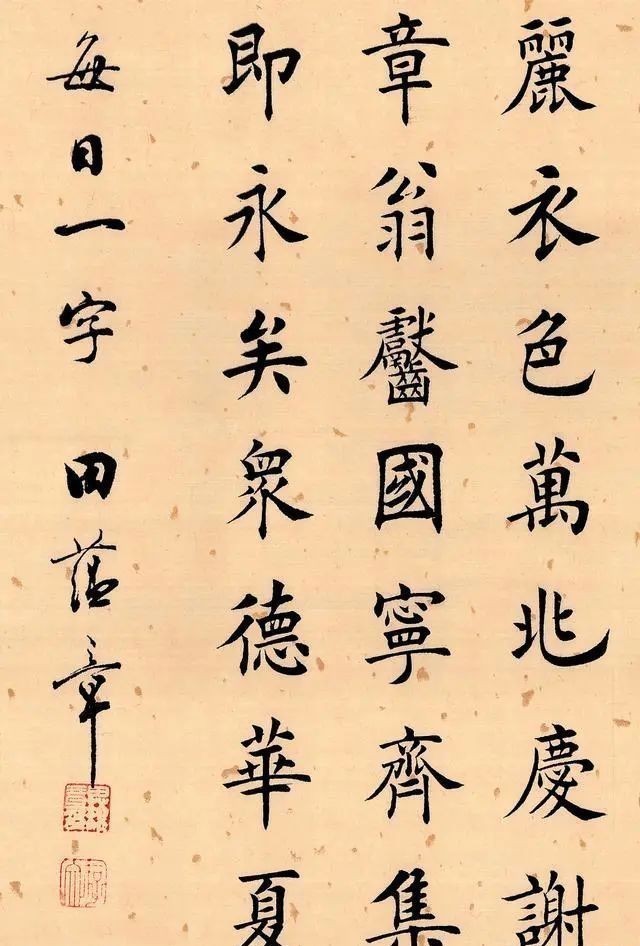 麗衣色萬北慶謝
章翁齾國寧齊集
即永矣衆德華夏
每日一字 田蘊章